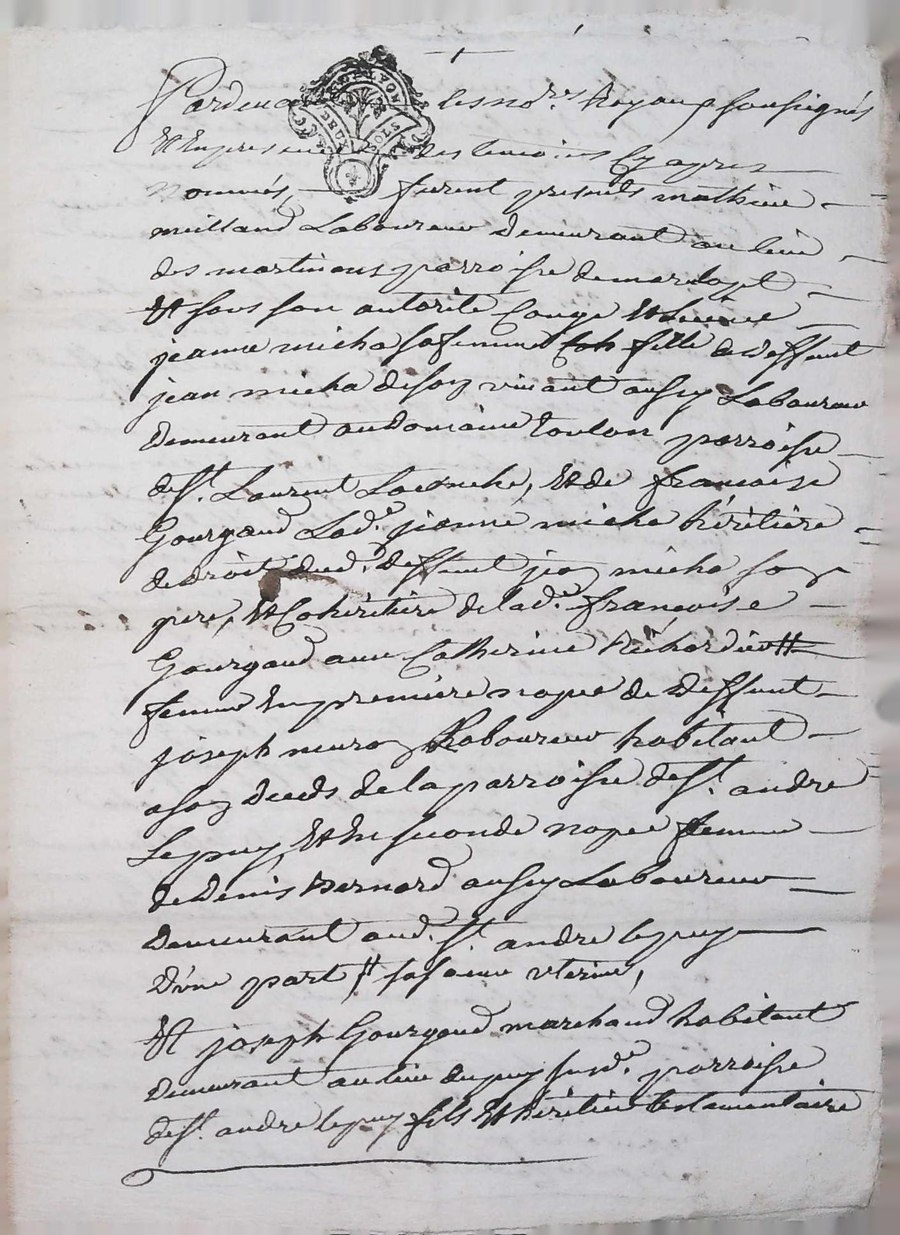 Pardeva les no.res Royaux soussignés
Et En presence des temoins Cy apres
nommés, furent presents mathieu
meilland Laboureur Demeurant au lieu
des martinons parroisse de
Et sous son autorité Conge Et Licence
jeanne micha sa femme fille de Deffunt
jean micha de son vivant aussy Laboureur
Demeurant au Domaine toulon parroisse
de St. Laurent Laconche, Et de francoise
Gourgaud Lad.e jeanne micha heritière
de Droit dud. Deffunt jean micha son
pere, Et Coheritiere de lad.e francoise
Gourgaud avec Catherine Richard
femme En premiere nopce de Deffunt
joseph Laboureur habitant
a son Deceds de la parroisse de St. andre
Lepuy, Et En seconde nopce femme
de Denis Bernard aussy Laboureur
Demeurant aud. St. andre lepuy
D'une part sa soeur uterine,
Et joseph Gourgaud marchand habitant
Demeurant au lieu du puy susd.e parroisse
de St. andre lepuy fils Et heritier testamentaire
LYON
DEUX SOLS